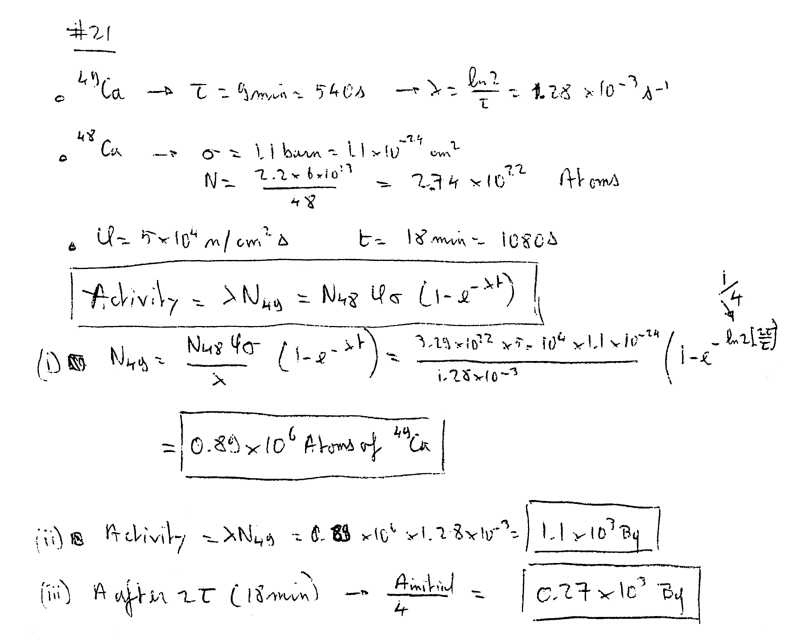 #21
⁴⁹Ca → τ = 9min = 540s → λ = ln2/τ = 1.28 × 10⁻³ s⁻¹
⁴⁸Ca → σ = 1.1 barn = 1.1×10⁻²⁴ cm²
N = 2.2×6×10²³/48 = 2.74 × 10²² Atoms
φ = 5×10⁴ n/cm² s t = 18 min = 1080s
Activity = λN₄₉ = N₄₈ φσ (1-e^-λt)
1/4
(i) N₄₉ = N₄₈ φσ/λ (1-e^-λt) = 3.29×10²² × 5 × 10⁴ × 1.1 × 10⁻²⁴/1.28×10⁻³ (1-e^-ln2[2τ/τ])
= 0.89 × 10⁶ Atoms of ⁴⁹Ca
(ii) Activity = λN₄₉ = 0.89 × 10⁶ × 1.28×10⁻³ = 1.1 × 10³ Bq
(iii) A after 2τ (18min) → Ainitial/4 = 0.27 × 10³ Bq